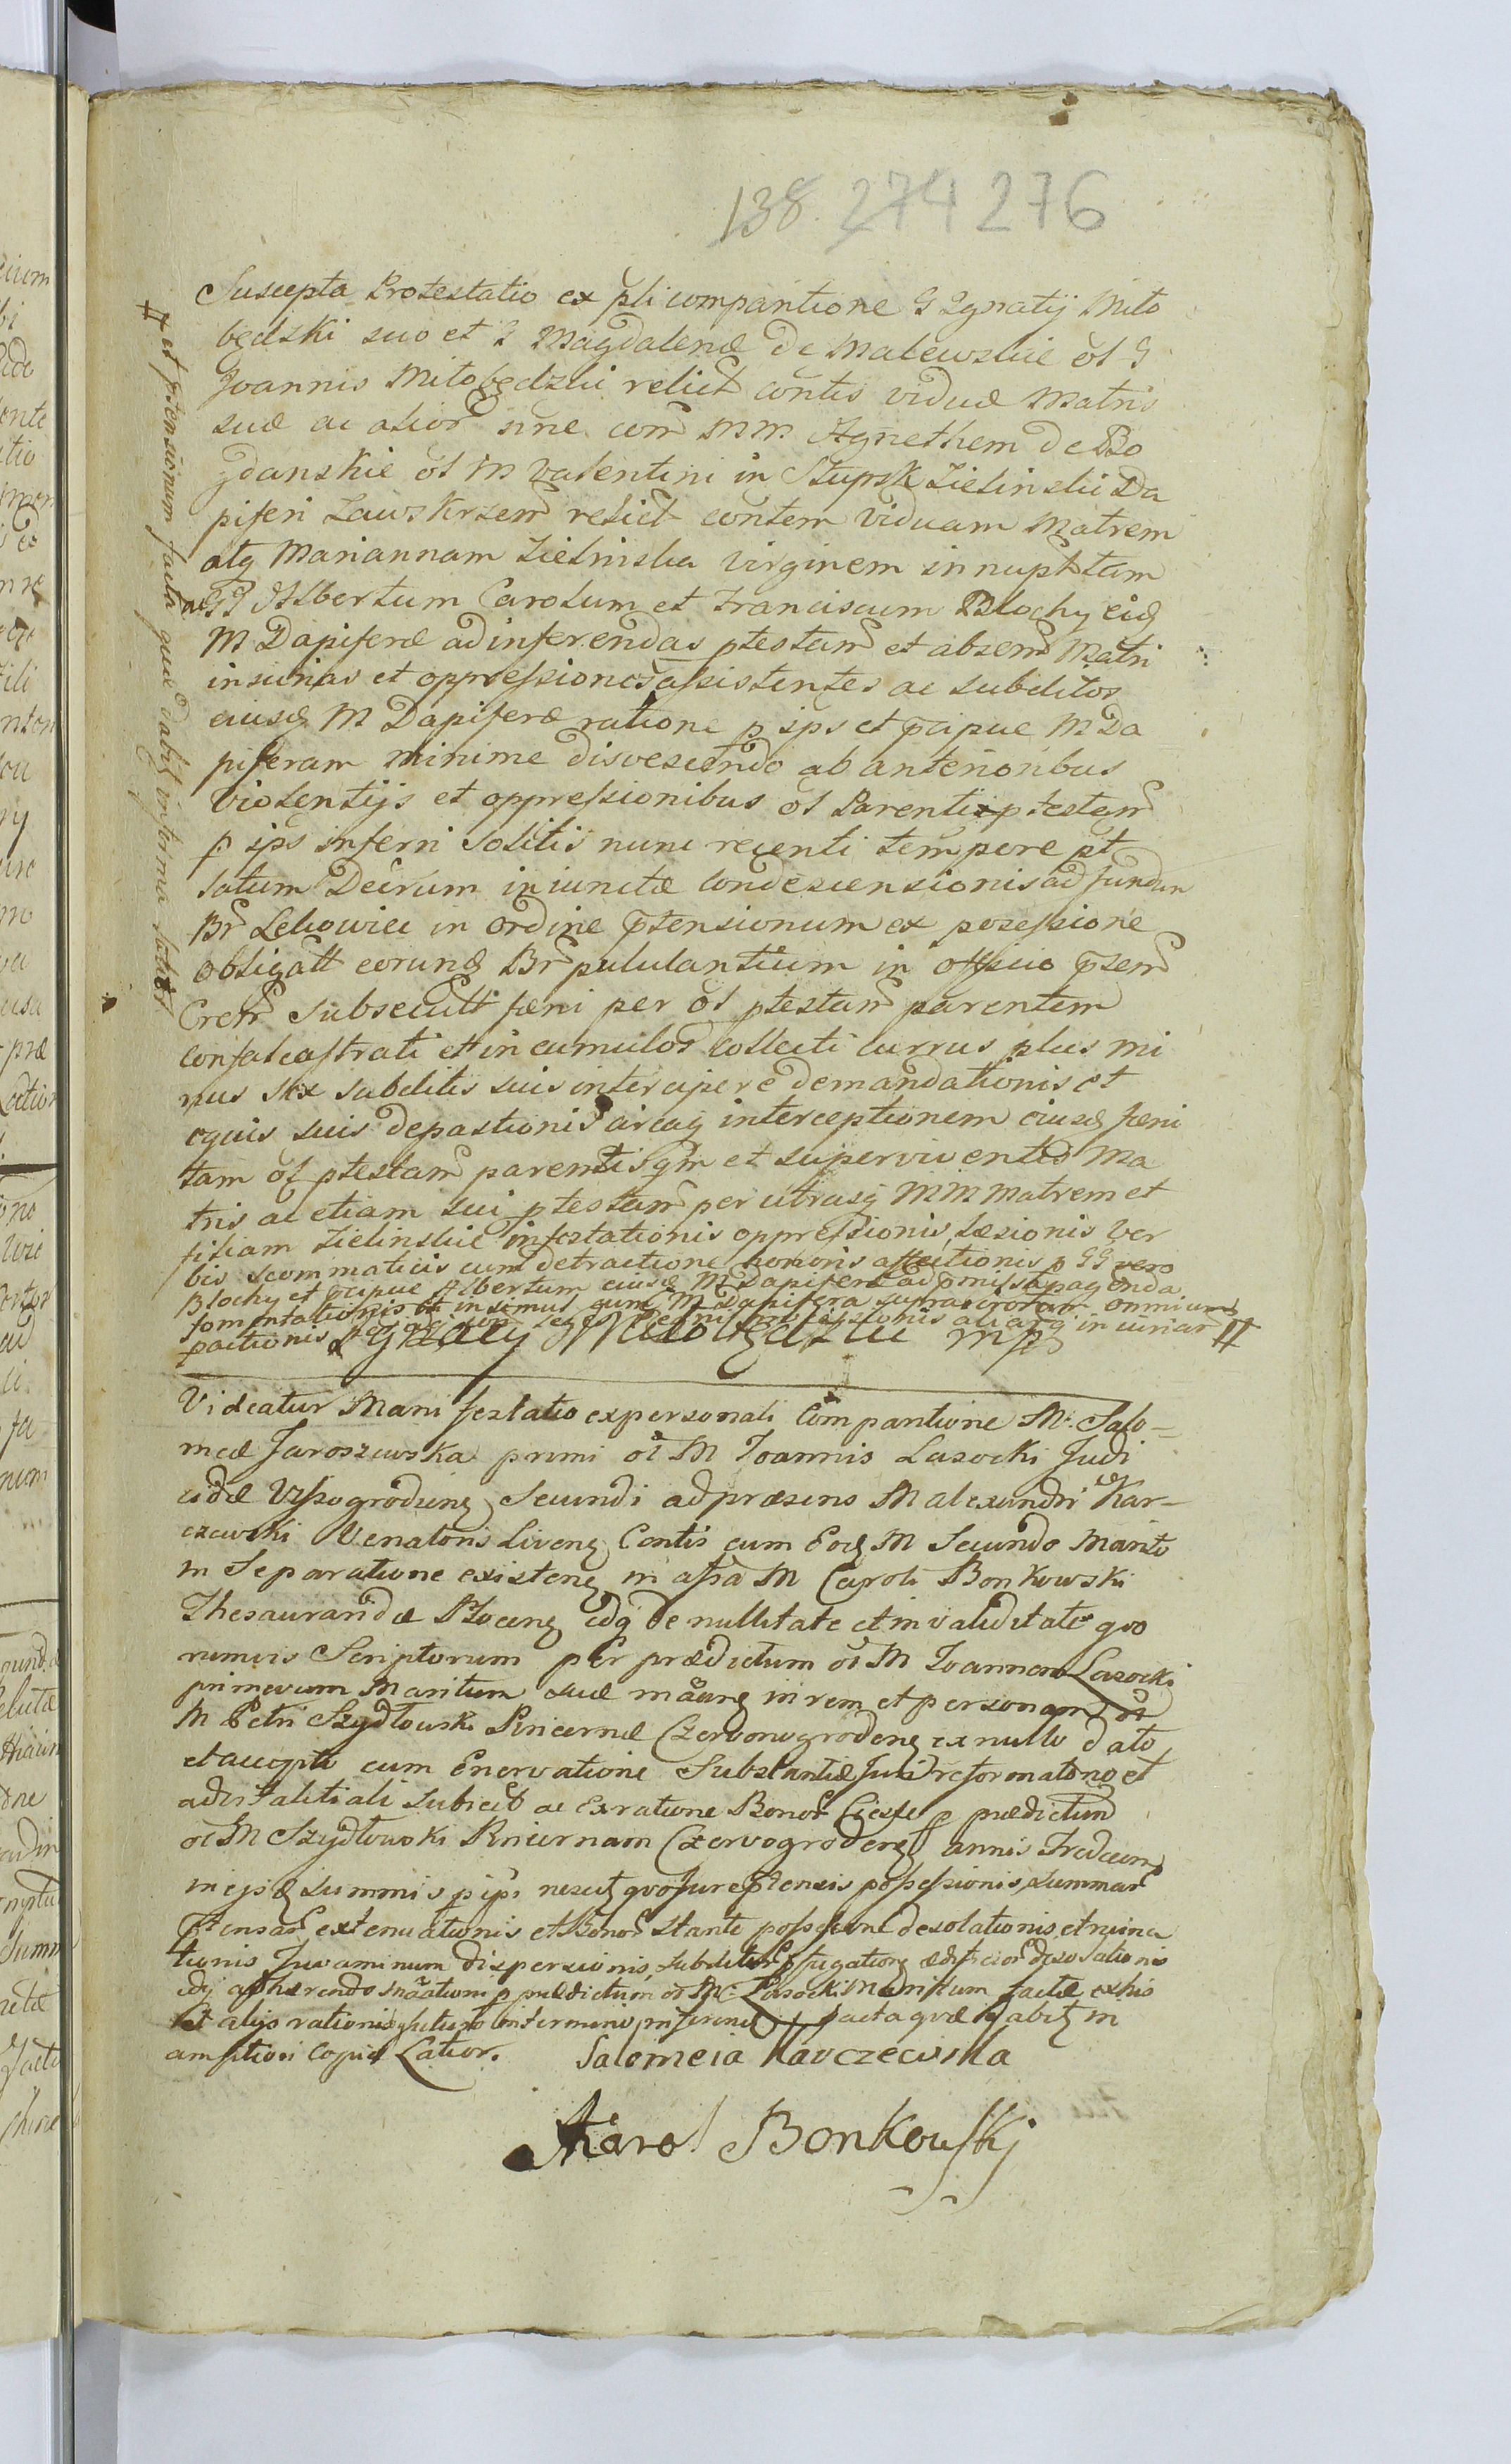 138. 274 276
Suscepta Protestatio ex pli compantione G Ignatij Miło
będzki suo et G Magdalenæ de Malewskie ol G
Joannis Miłobędzki relict contis viduæ Matris
suæ ac alior nne com MM Agnethem de Bo
gdanskie ol M Valentini in Słupsk Zielinski Da
piferi Zawskrzem relict contem viduam Matrem
atq Mariannam Zielinska virginem innuptam
ac GG Albertum Carolum et Franciscum Blochy eid
M Dapiferæ ad inferendas ptestam et absem Matri
iniurias et oppressiones assistentes ac subditos
eiusd M Dapiferæ ratione p ips et pcipue M Da
piferam minime discescendo ab anterioribus
violentijs et oppressionibus ol Parenti ptestam
p ips inferri solitis nunc recenti tempore pt
latum Decrum iniunctæ condescensionis ad fundum
Br Lelowice in ordine ptensionum ex possessione
obligatt eorund Br pululantium in officio psem
Crem subsecutt fæni per ol ptestam parentem
confalcastrati et in cumulos collecti currus plus mi
nus sex subditis suis intercipere demandationis et
equis suis depastionis circaq interceptionem eiusd fæni
tam ol ptestam parentis qm et superviventis Ma
tris ac etiam sui ptestam per utrasq MM Matrem et
filiam Zielinskie infestationis oppressionis læsionis ver
bis scommaticis cum detractione honoris affectionis p GG vero
Blochy et pcipue Albertum eiusd M Dapiferæ ad pmissa pagenda
fomentationis et insimul cum M Dapifera omnium
pactionis aliarq iniuriar #
Ignacy Miłobędzki mp
# et ptensionum facta quæ dabit in forma latior
Videatur Manifestatio ex personali Compantione M. Salo-
meæ Jaroszewska primi ol M Joannis Lasocki Judi
cidæ Wyszogrodien Secundi ad præsens M Alexandri Kar-
czewski Venatoris Livens Contis cum Eod M Secundo Marito
in Separatione existens in assa M Caroli Bonkowski
Thesaurandæ Płocens idq de nullitate et invaliditate quo
rumvis Scriptorum per prædictum ol M Joannem Lasocki
primevum Maritum suæ in rem et personam ol
M Petri Szydłowski Pincernæ Czervonogrodens ex nullo dato
et accepto cum Enervatione Substantiæ Juri reformatorio et
advitalitiali subiect ac ex ratione Bonor Ciesle p prædictum
ol M Szydłowski Pincernam Czervogrodens annis tredecim
in ejsd summis p ips possessionis summar
extenuationis et Bonor stante possessione desolationis et ruina
tionis Juvaminum dispersionis, subditor pfugatione ædificior desolationis
idq adhærendo p prædictum ol M. Lasocki Maritum factæ ex his
et alijs rationib futuro in termino inferend facta quæ dabit in
ampliori Copia Latior. Salomeia Karczewska
Karol Bonkowskj